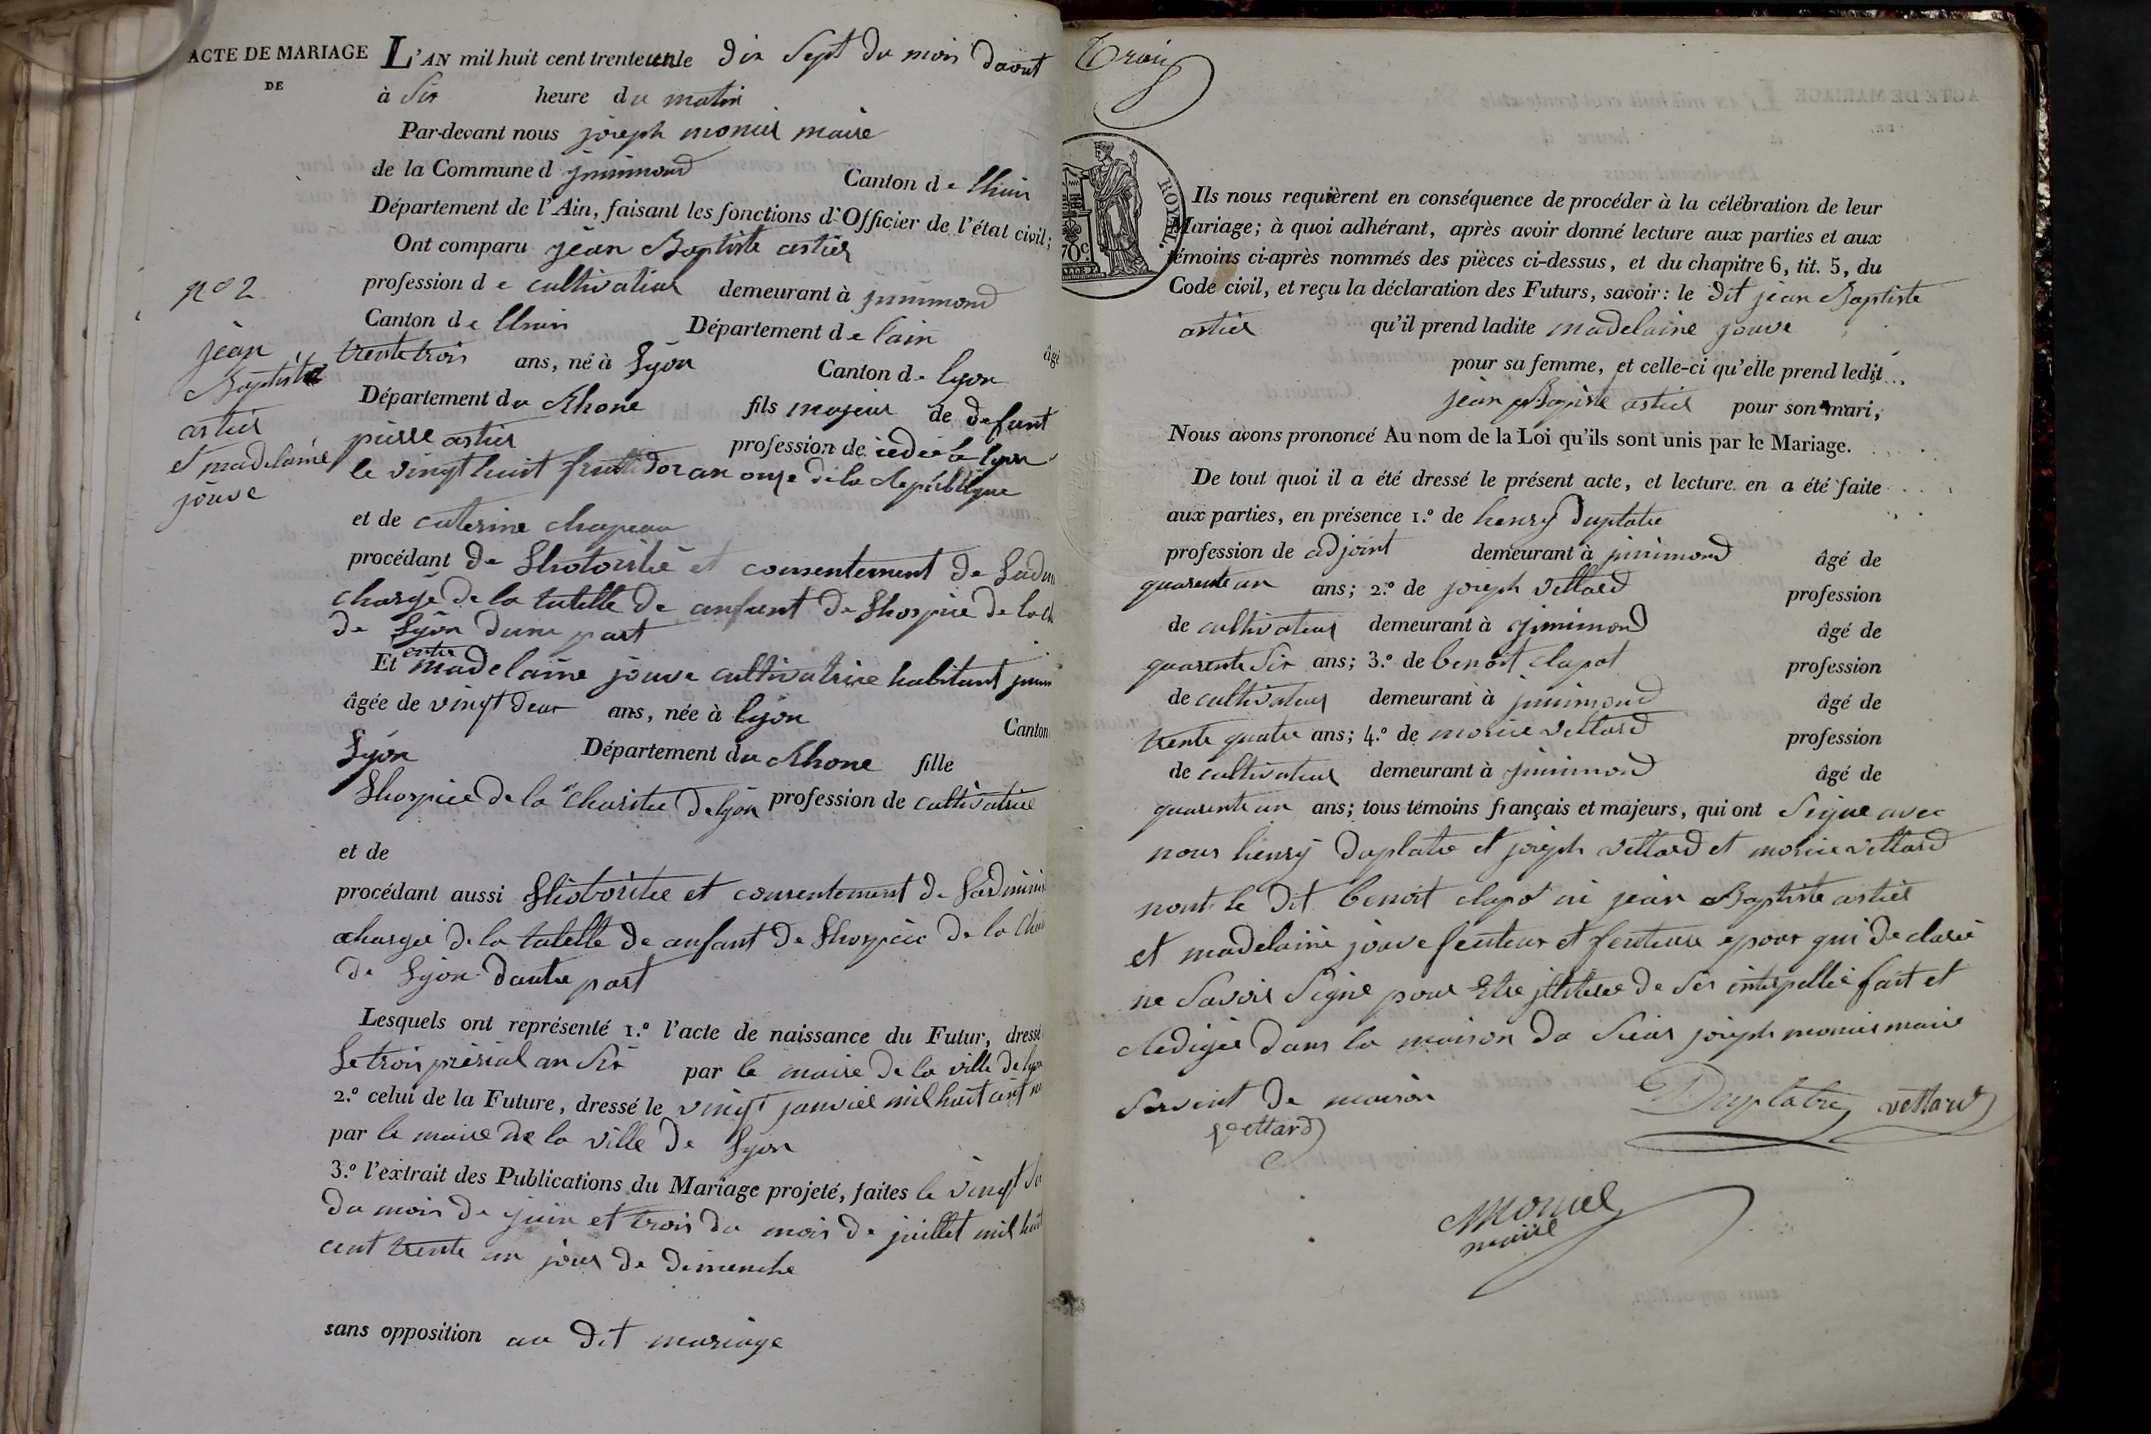 ACTE DE MARIAGE
DE
n° 2
jean
Baptiste
astier
et madelaine
jouve
L'AN mil huit cent trente un le dix Sept du mois daout
à Six heure du matin
Par-devant nous joseph monier maire
de la Commune d jnnimond Canton de lhuis
Département de l'Ain, faisant les fonctions d'Officier de l'état civil;
Ont comparu jean Baptiste astier
profession de cultivateur demeurant à jnnimond
Canton de lhuis Département de lain
âgé
trente trois ans, né à Lyon Canton de lyon
Département du Rhone fils majeur de defunt
pierre astier profession de dedée a lyon
le vingt huit fructidor an onze de la Republique
et de caterine chapeau
procédant de Lhotoritée et consentement de
chargé de la tutelle de anfant de Lhospice de la
de Lyon dune part
Et entre madelaine jouve cultivatrice habitant
âgée de vingt deux ans, née à lyon Canton
Lyon Département du Rhone fille
Lhospice de la Charitée de lyon profession de cultivatrice
et de
procédant aussi Lhotoritée et consentement de
chargée de la tutelle de anfant de Lhospice de la
de Lyon dautre part
Lesquels ont représenté 1.° l'acte de naissance du Futur, dressé
Le trois prerial an Six par le maire de la ville de lyon
2.° celui de la Future, dressé le vingt janvier mil huit cent
par le maire de la ville de Lyon
3.° l'extrait des Publications du Mariage projeté, faites le vingt
du mois de juin et trois du mois de juillet mil huit
cent trente un jour de dimenche
sans opposition au dit mariage
Trois
ROYAL.
70c
Ils nous requièrent en conséquence de procéder à la célébration de leur
Mariage; à quoi adhérant, après avoir donné lecture aux parties et aux
témoins ci-après nommés des pièces ci-dessus, et du chapitre 6, tit. 5, du
Code civil, et reçu la déclaration des Futurs, savoir: le dit jean Baptiste
astier qu'il prend ladite madelaine jouve
pour sa femme, et celle-ci qu'elle prend ledit
jean Baptiste astier pour son mari,
Nous avons prononcé Au nom de la Loi qu'ils sont unis par le Mariage.
De tout quoi il a été dressé le présent acte, et lecture en a été faite
aux parties, en présence 1.° de henry Duplatre
profession de adjoint demeurant à jnnimond âgé de
quarente un ans; 2.° de joseph Vettard profession
de cultivateur demeurant à jnnimond âgé de
quarente Six ans; 3.° de benoit clapot profession
de cultivateur demeurant à jnnimond âgé de
trente quatre ans; 4.° de morice Vettard profession
de cultivateur demeurant à jnnimond âgé de
quarente un ans; tous témoins français et majeurs, qui ont Signe avec
nous henry Duplatre et joseph Vettard et morice vettard
nont le dit benoit clapot ni jean Baptiste astier
et madelaine jouve feuteur et feuteure epoux qui declaré
ne Savoir Signé pour Etre de Ser interpellée fait et
Redigée dans la maison du Sieur joseph monier maire
Servent de maison
Duplatre vettard
Vettard
Monier
maire